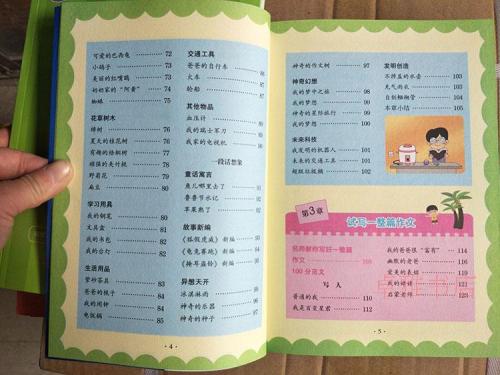 可爱的巴西龟 ………… 72
小鸽子 ………… 73
美丽的红嘴鸥 ………… 73
奶奶家的“阿黄” ………… 74
蜘蛛 ………… 75
花草树木
樟树 ………… 76
夏天的桂花树 ………… 76
有趣的梧桐树 ………… 77
野菊花 ………… 79
扁豆 ………… 80
学习用具
我的钢笔 ………… 80
文具盒 ………… 81
我的书包 ………… 82
我的台灯 ………… 82
生活用品
紫砂茶具 ………… 83
爸爸的梳子 ………… 84
我的闹钟 ………… 84
电饭锅 ………… 85
交通工具
爸爸的自行车 ………… 86
火车 ………… 87
轮船 ………… 87
其他物品
血压计 ………… 88
我的瑞士军刀 ………… 88
我家的电视机 ………… 89
一段话想象
童话寓言
鱼儿哪里去了 …………
鲁鲁节水记 …………
苹果熟了 …………
故事新编
《狐假虎威》新编
《龟兔赛跑》新编
《掩耳盗铃》新编
异想天开
冰淇淋雨 …………
神奇的乐器 …………
神奇的种子 …………
· 4 ·
神奇的作文树 ………… 97
神奇幻想
我的梦中之旅 ………… 98
我的梦想 ………… 99
神奇的星际旅行 ………… 99
我的梦想 ………… 100
未来科技
我发明的机器人 ………… 101
未来的交通工具 ………… 101
超级垃圾桶 ………… 102
发明创造
不挨盖的水壶 ………… 103
充气雨衣 ………… 103
自创蝈蝈笼 ………… 104
本章小结 ………… 105
第3章 试写一整篇作文
名师教你写好一整篇
作文 ………… 108
100分范文
写人
普通的我 ………… 110
我是百变星君 ………… 112
我的爸爸很“富有” ………… 114
幽默的老爸 ………… 116
爱美的表姐 ………… 118
我的姥姥 ………… 121
启蒙老师 ………… 123
· 5 ·